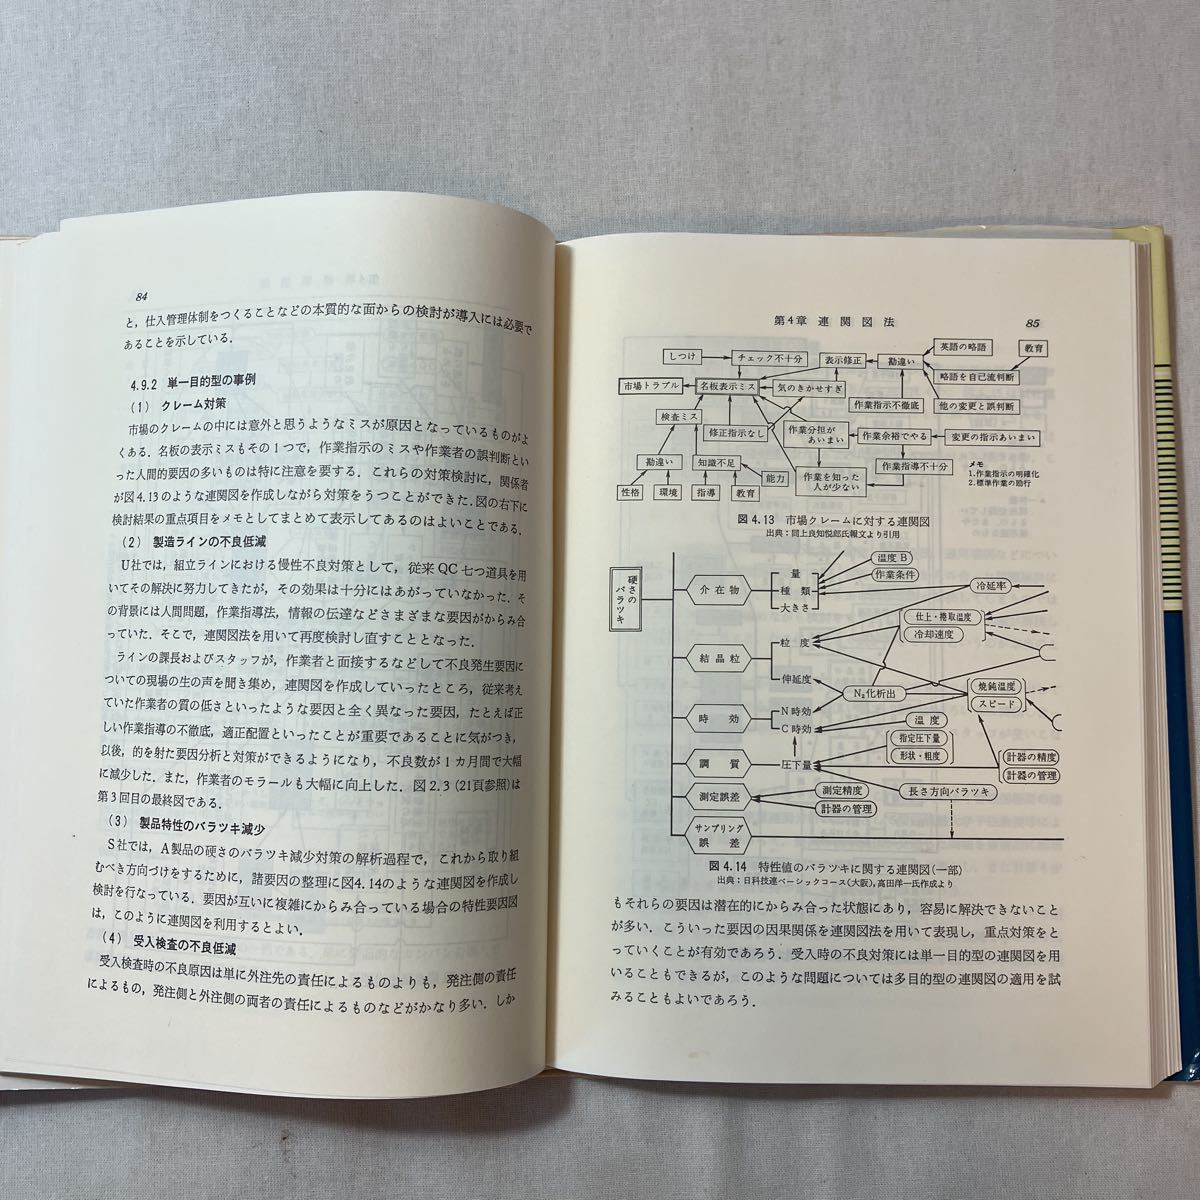 84
と，仕入管理体制をつくることなどの本質的な面からの検討が導入には必要で
あることを示している．
4.9.2 単一目的型の事例
(1) クレーム対策
市場のクレームの中には意外と思うようなミスが原因となっているものがよ
くある．名板の表示ミスもその1つで，作業指示のミスや作業者の誤判断とい
った人間的要因の多いものは特に注意を要する．これらの対策検討に，関係者
が図4.13のような連関図を作成しながら対策をうつことができた．図の右下に
検討結果の重点項目をメモとしてまとめて表示してあるのはよいことである．
(2) 製造ラインの不良低減
U社では，組立ラインにおける慢性不良対策として，従来QC七つ道具を用
いてその解決に努力してきたが，その効果は十分にはあがっていなかった．そ
の背景には人間問題，作業指導法，情報の伝達などさまざまな要因がからみ合
っていた．そこで，連関図法を用いて再度検討し直すこととなった．
ラインの課長およびスタッフが，作業者と面接するなどして不良発生要因に
ついての現場の生の声を聞き集め，連関図を作成していったところ，従来考え
ていた作業者の質の低さといったような要因と全く異なった要因，たとえば正
しい作業指導の不徹底，適正配置といったことが重要であることに気がつき，
以後，的を射た要因分析と対策ができるようになり，不良数が1ヵ月間で大幅
に減少した．また，作業者のモラールも大幅に向上した．図2.3（21頁参照）は
第3回目の最終図である．
(3) 製品特性のバラツキ減少
S社では，A製品の硬さのバラツキ減少対策の解析過程で，これから取り組
むべき方向づけをするために，諸要因の整理に図4.14のような連関図を作成し
検討を行なっている．要因が互いに複雑にからみ合っている場合の特性要因図
は，このように連関図を利用するとよい．
(4) 受入検査の不良低減
受入検査時の不良原因は単に外注先の責任によるものよりも，発注側の責任
によるもの，発注側と外注側の両者の責任によるものなどがかなり多い．しか
第4章 連関図法 85
しつけ
チェック不十分
表示修正
勘違い
英語の略語
教育
市場トラブル
名板表示ミス
気のきかせすぎ
略語を自己流判断
作業指示不徹底
他の変更と誤判断
検査ミス
修正指示なし
作業分担が
あいまい
作業余裕でやる
変更の指示あいまい
勘違い
知識不足
能力
作業を知った
人が少ない
作業指導不十分
メモ
1.作業指示の明確化
2.標準作業の励行
性格
環境
指導
教育
図4.13 市場クレームに対する連関図
出典：同上良知悦郎氏報文より引用
硬さの
バラツキ
介在物
量
種類
大きさ
温度B
作業条件
冷延率
仕上・捲取温度
冷却速度
結晶粒
粒度
伸延度
N₂化析出
焼鈍温度
スピード
時効
N時効
C時効
温度
指定圧下量
形状・粗度
調質
圧下量
計器の精度
計器の管理
長さ方向バラツキ
測定誤差
測定精度
計器の管理
サンプリング
誤差
図4.14 特性値のバラツキに関する連関図（一部）
出典：日科技連ベーシックコース（大阪），高田洋一氏作成より
もそれらの要因は潜在的にからみ合った状態にあり，容易に解決できないこと
が多い．こういった要因の因果関係を連関図法を用いて表現し，重点対策をと
っていくことが有効であろう．受入時の不良対策には単一目的型の連関図を用
いることもできるが，このような問題については多目的型の連関図の適用を試
みることもよいであろう．